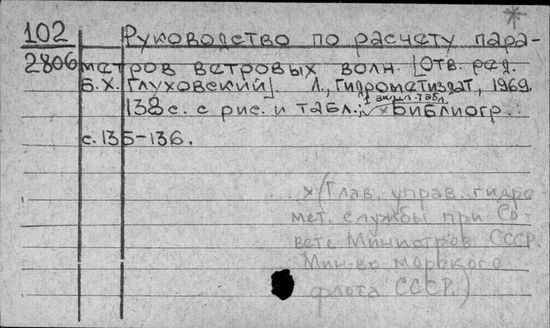 102 Руководство по расчету пара-
2806 метров ветровых волн. [Отв. ред.
Б.Х. Глуховский]. Л., Гидрометиздат, 1969.
138 с. с рис. и табл.; 1 вкл. табл. х Библиогр.:
с. 135-136.
х (Глав. управ. гидро-
мет. службы при Со-
вете Министров СССР.
Мин-во морского
флота СССР.)